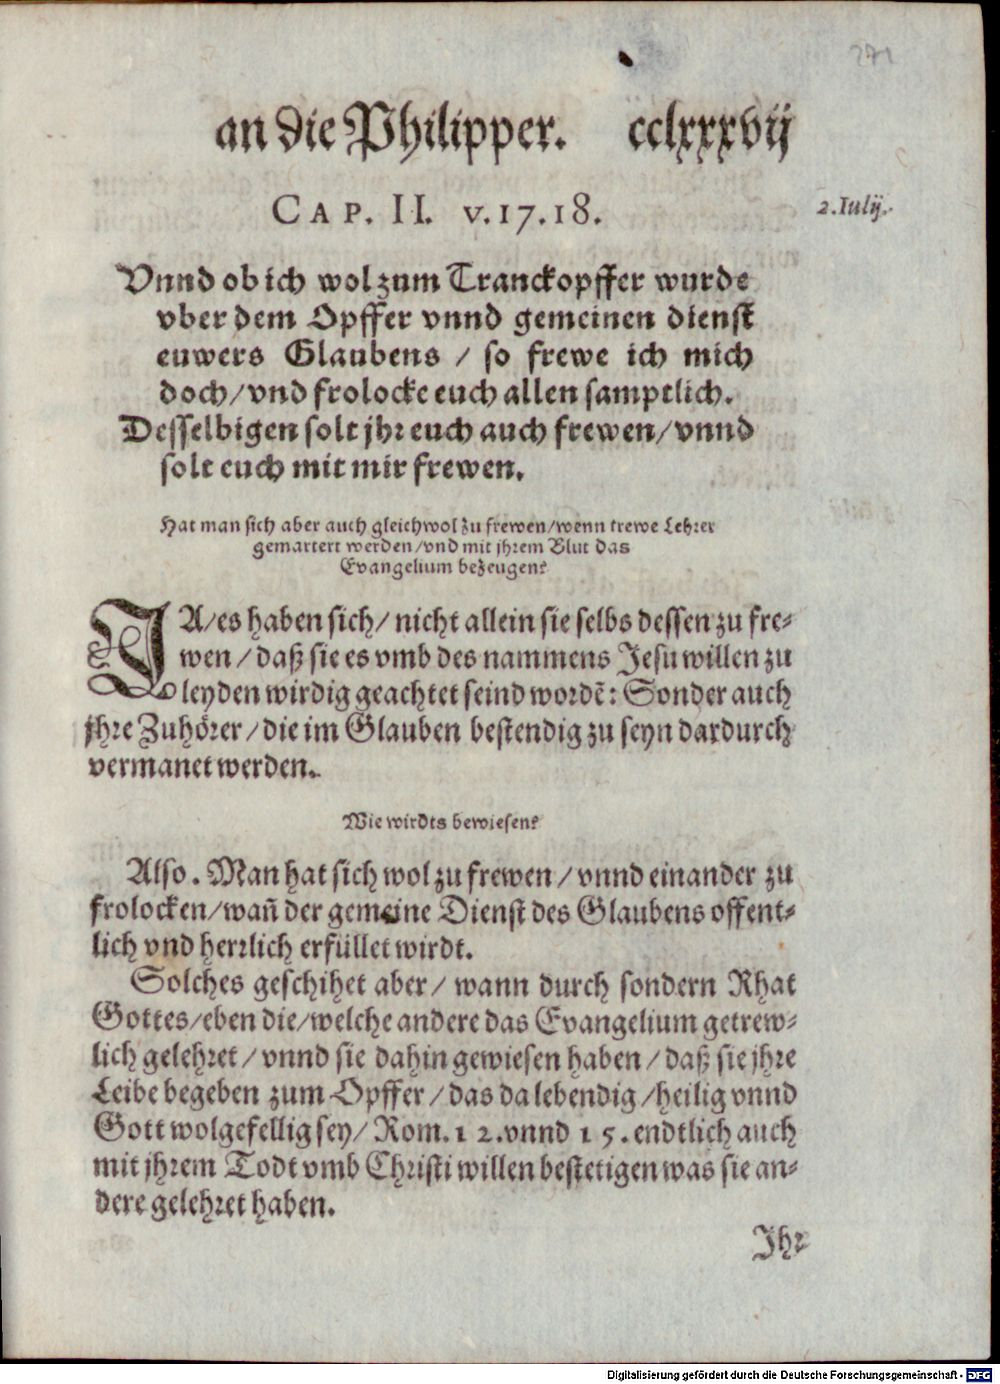 271
an die Philipper. cclxxxvij
CAP. II. v. 17. 18.
2. Iulij.
Vnnd ob ich wol zum Tranckopffer wurde
vber dem Opffer vnnd gemeinen dienst
euwers Glaubens / so frewe ich mich
doch / vnd frolocke euch allen samptlich.
Desselbigen solt jhr euch auch frewen / vnnd
solt euch mit mir frewen.
Hat man sich aber auch gleichwol zu frewen / wenn trewe Lehrer
gemartert werden / vnd mit jhrem Blut das
Evangelium bezeugen?
JA / es haben sich / nicht allein sie selbs dessen zu fre-
wen / daß sie es vmb des nammens Jesu willen zu
leyden wirdig geachtet seind wordē: Sonder auch
jhre Zuhörer / die im Glauben bestendig zu seyn dardurch
vermanet werden.
Wie wirdts bewiesen?
Also. Man hat sich wol zu frewen / vnnd einander zu
frolocken / wañ der gemeine Dienst des Glaubens offent-
lich vnd herrlich erfüllet wirdt.
Solches geschihet aber / wann durch sondern Rhat
Gottes / eben die / welche andere das Evangelium getrew-
lich gelehret / vnnd sie dahin gewiesen haben / daß sie jhre
Leibe begeben zum Opffer / das da lebendig / heilig vnnd
Gott wolgefellig sey / Rom. 12. vnnd 15. endtlich auch
mit jhrem Todt vmb Christi willen bestetigen was sie an-
dere gelehret haben.
Jhr
Digitalisierung gefördert durch die Deutsche Forschungsgemeinschaft - DFG